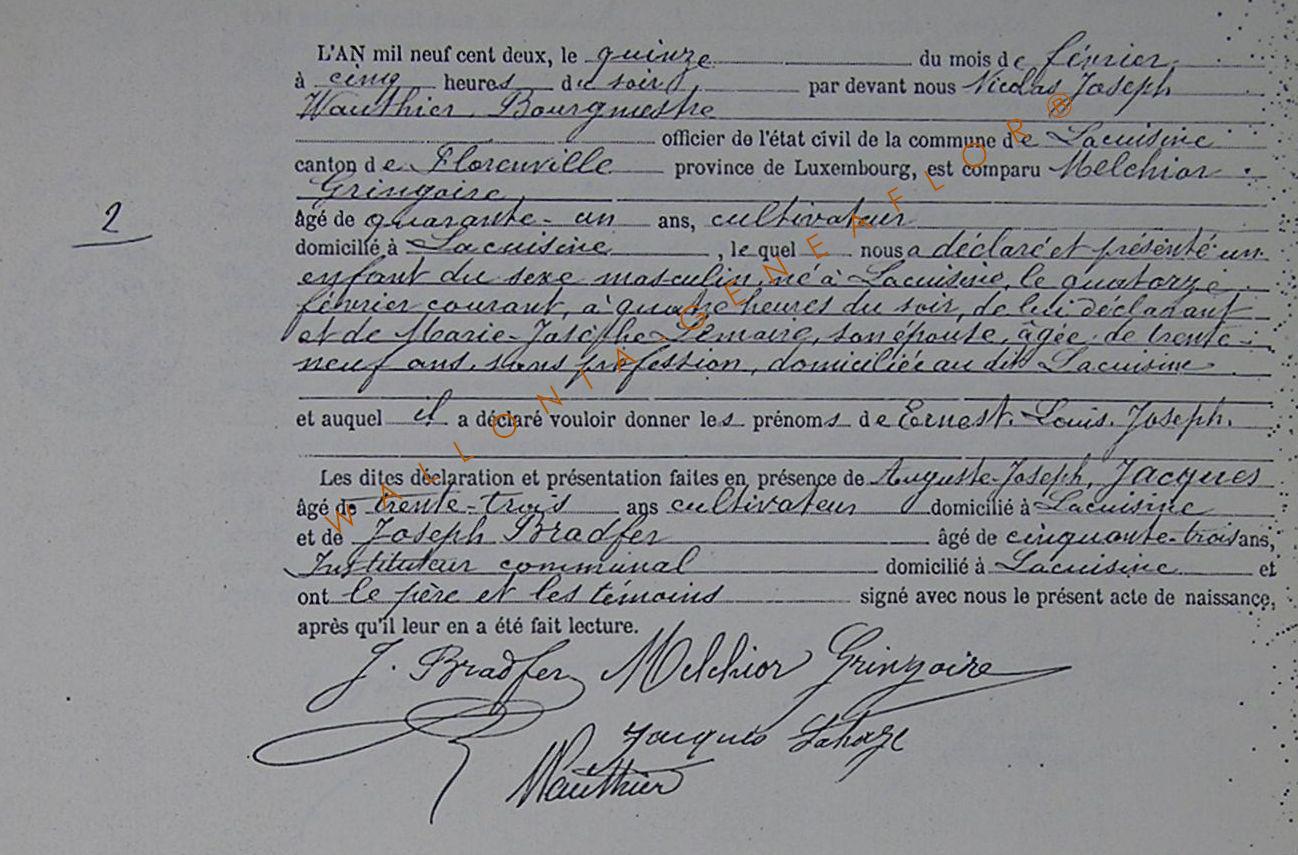 L'AN mil neuf cent deux, le quinze du mois de février
à cinq heures du soir par devant nous Nicolas Joseph
Wauthier, Bourgmestre
officier de l'état civil de la commune de Lacuisine
canton de Florenville province de Luxembourg, est comparu Melchior
Gringoire
âgé de quarante-un ans, cultivateur
2
domicilié à Lacuisine, le quel nous a déclaré et présenté un
enfant du sexe masculin, né à Lacuisine, le quatorze
février courant, à quatre heures du soir, de lui déclarant
et de Marie-Josèphe Lemaire, son épouse, âgée de trente-
neuf ans, sans profession, domiciliée au dit Lacuisine
et auquel il a déclaré vouloir donner les prénoms de Ernest. Louis. Joseph.
Les dites déclaration et présentation faites en présence de Auguste-Joseph, Jacques
âgé de trente-trois ans cultivateur domicilié à Lacuisine
et de Joseph Bradfer âgé de cinquante-trois ans,
Instituteur communal domicilié à Lacuisine et
ont le père et les témoins signé avec nous le présent acte de naissance,
après qu'il leur en a été fait lecture.
J. Bradfer Melchior Gringoire
Jacques
Wauthier
WALLONIA-GENEAFLOR®